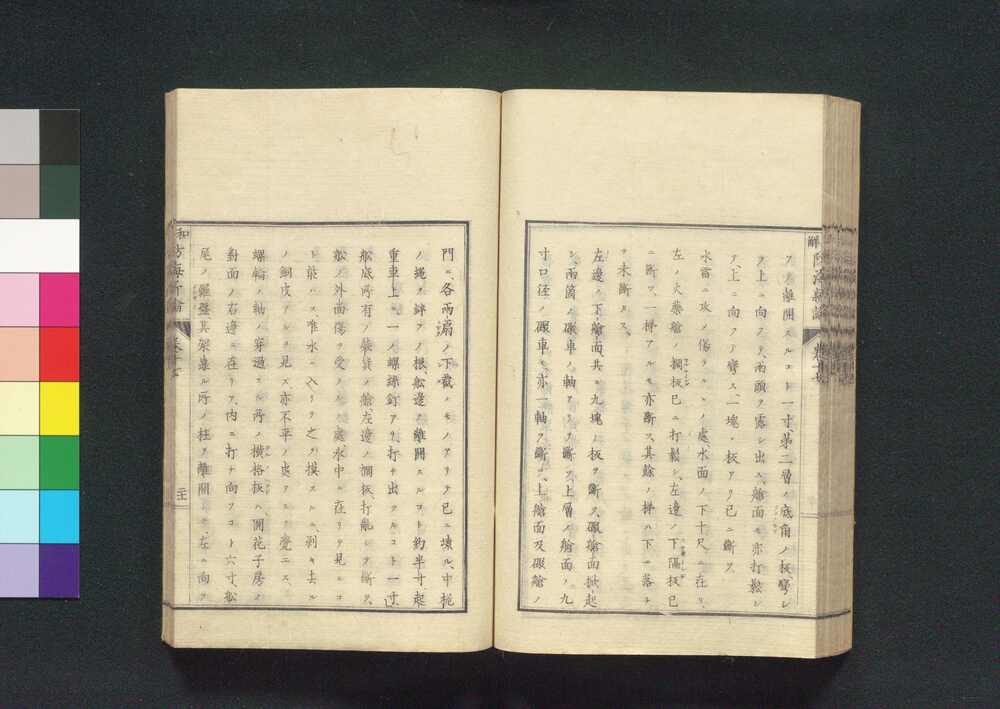 ヲ離開スルコト一寸、第二層ノ底角ノ板彎シ
ヲ上ニ向フ、又兩頭ヲ露シ出ス、艙面モ亦打鬆シ
テ上ニ向フテ彎ス、一塊ノ板アリ已ニ斷ス
水雷ニ攻メ傷ラルヽノ處、水面ノ下十尺ニ在リ、
左ノ火藥艙ノ攔板已ニ打鬆シ、左邊ノ下隔板已
ニ斷ヱ、一樺アルモ亦斷ス、其餘ノ樺ハ下ニ落チ
テ未斷タス
左邊ノ下艙面、其ニ九塊ノ板ヲ斷ス、礟艙面掀起
シ、兩箇ノ礟車ノ軸アリテ斷ヱ、上層ノ艙面ノ九
寸口徑ノ礟車モ、亦一軸ヲ斷シ、上艙面及礟艙ノ
門ニ、各兩扇ノ下截ノモノアリテ已ニ壞ル、中桅
ノ繩ヲ絆アノ根、船邊ヲ離開スルコト約半寸、起
重車上ニ、一ノ螺絲釘アリ打チ出サルヽコト一寸、
船底所有ノ裝貨ノ艙、左邊ノ攔板、打亂シテ斷ス、
船ノ外面傷ヲ受クルノ處、水中ニ在リテ見ルコ
ト能ハス、唯水ニ入リテ之ヲ摸スルニ、剥キ去ル
ノ銅皮アルヲ見ス、亦不平ノ處アルヲ覺エス、
螺輪ノ軸ノ穿過スル所ノ橫格板ハ、開花子房ノ
對面ノ右邊ニ在リ、內ニ打チ向フコト六寸、船
尾ノ羅盤其架葢ル所ノ柱ヲ離開シテ、左ニ向ヲ
卷十七
二十